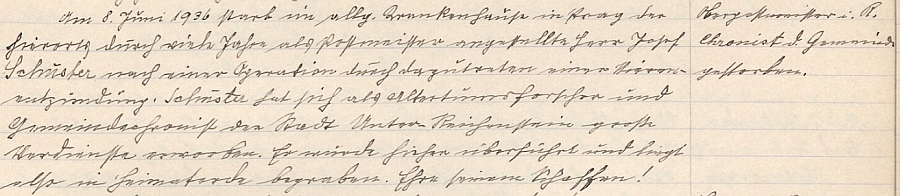 Am 8. Juni 1936 starb im allg. Krankenhause in Prag der
hierorts durch viele Jahre als Postmeister angestellte Herr Josef
Schuster nach einer Operation durch dazutreten einer Nieren-
entzündung. Schuster hat sich als Altertumsforscher und
Gemeindechronist der Stadt Unter-Reichenstein große
Verdienste erworben. Er wurde hieher überführt und liegt
also in Heimaterde begraben. Ehre seinem Schaffen!
Oberpostmeister i. R.
Chronist d. Gemeinde
gestorben.